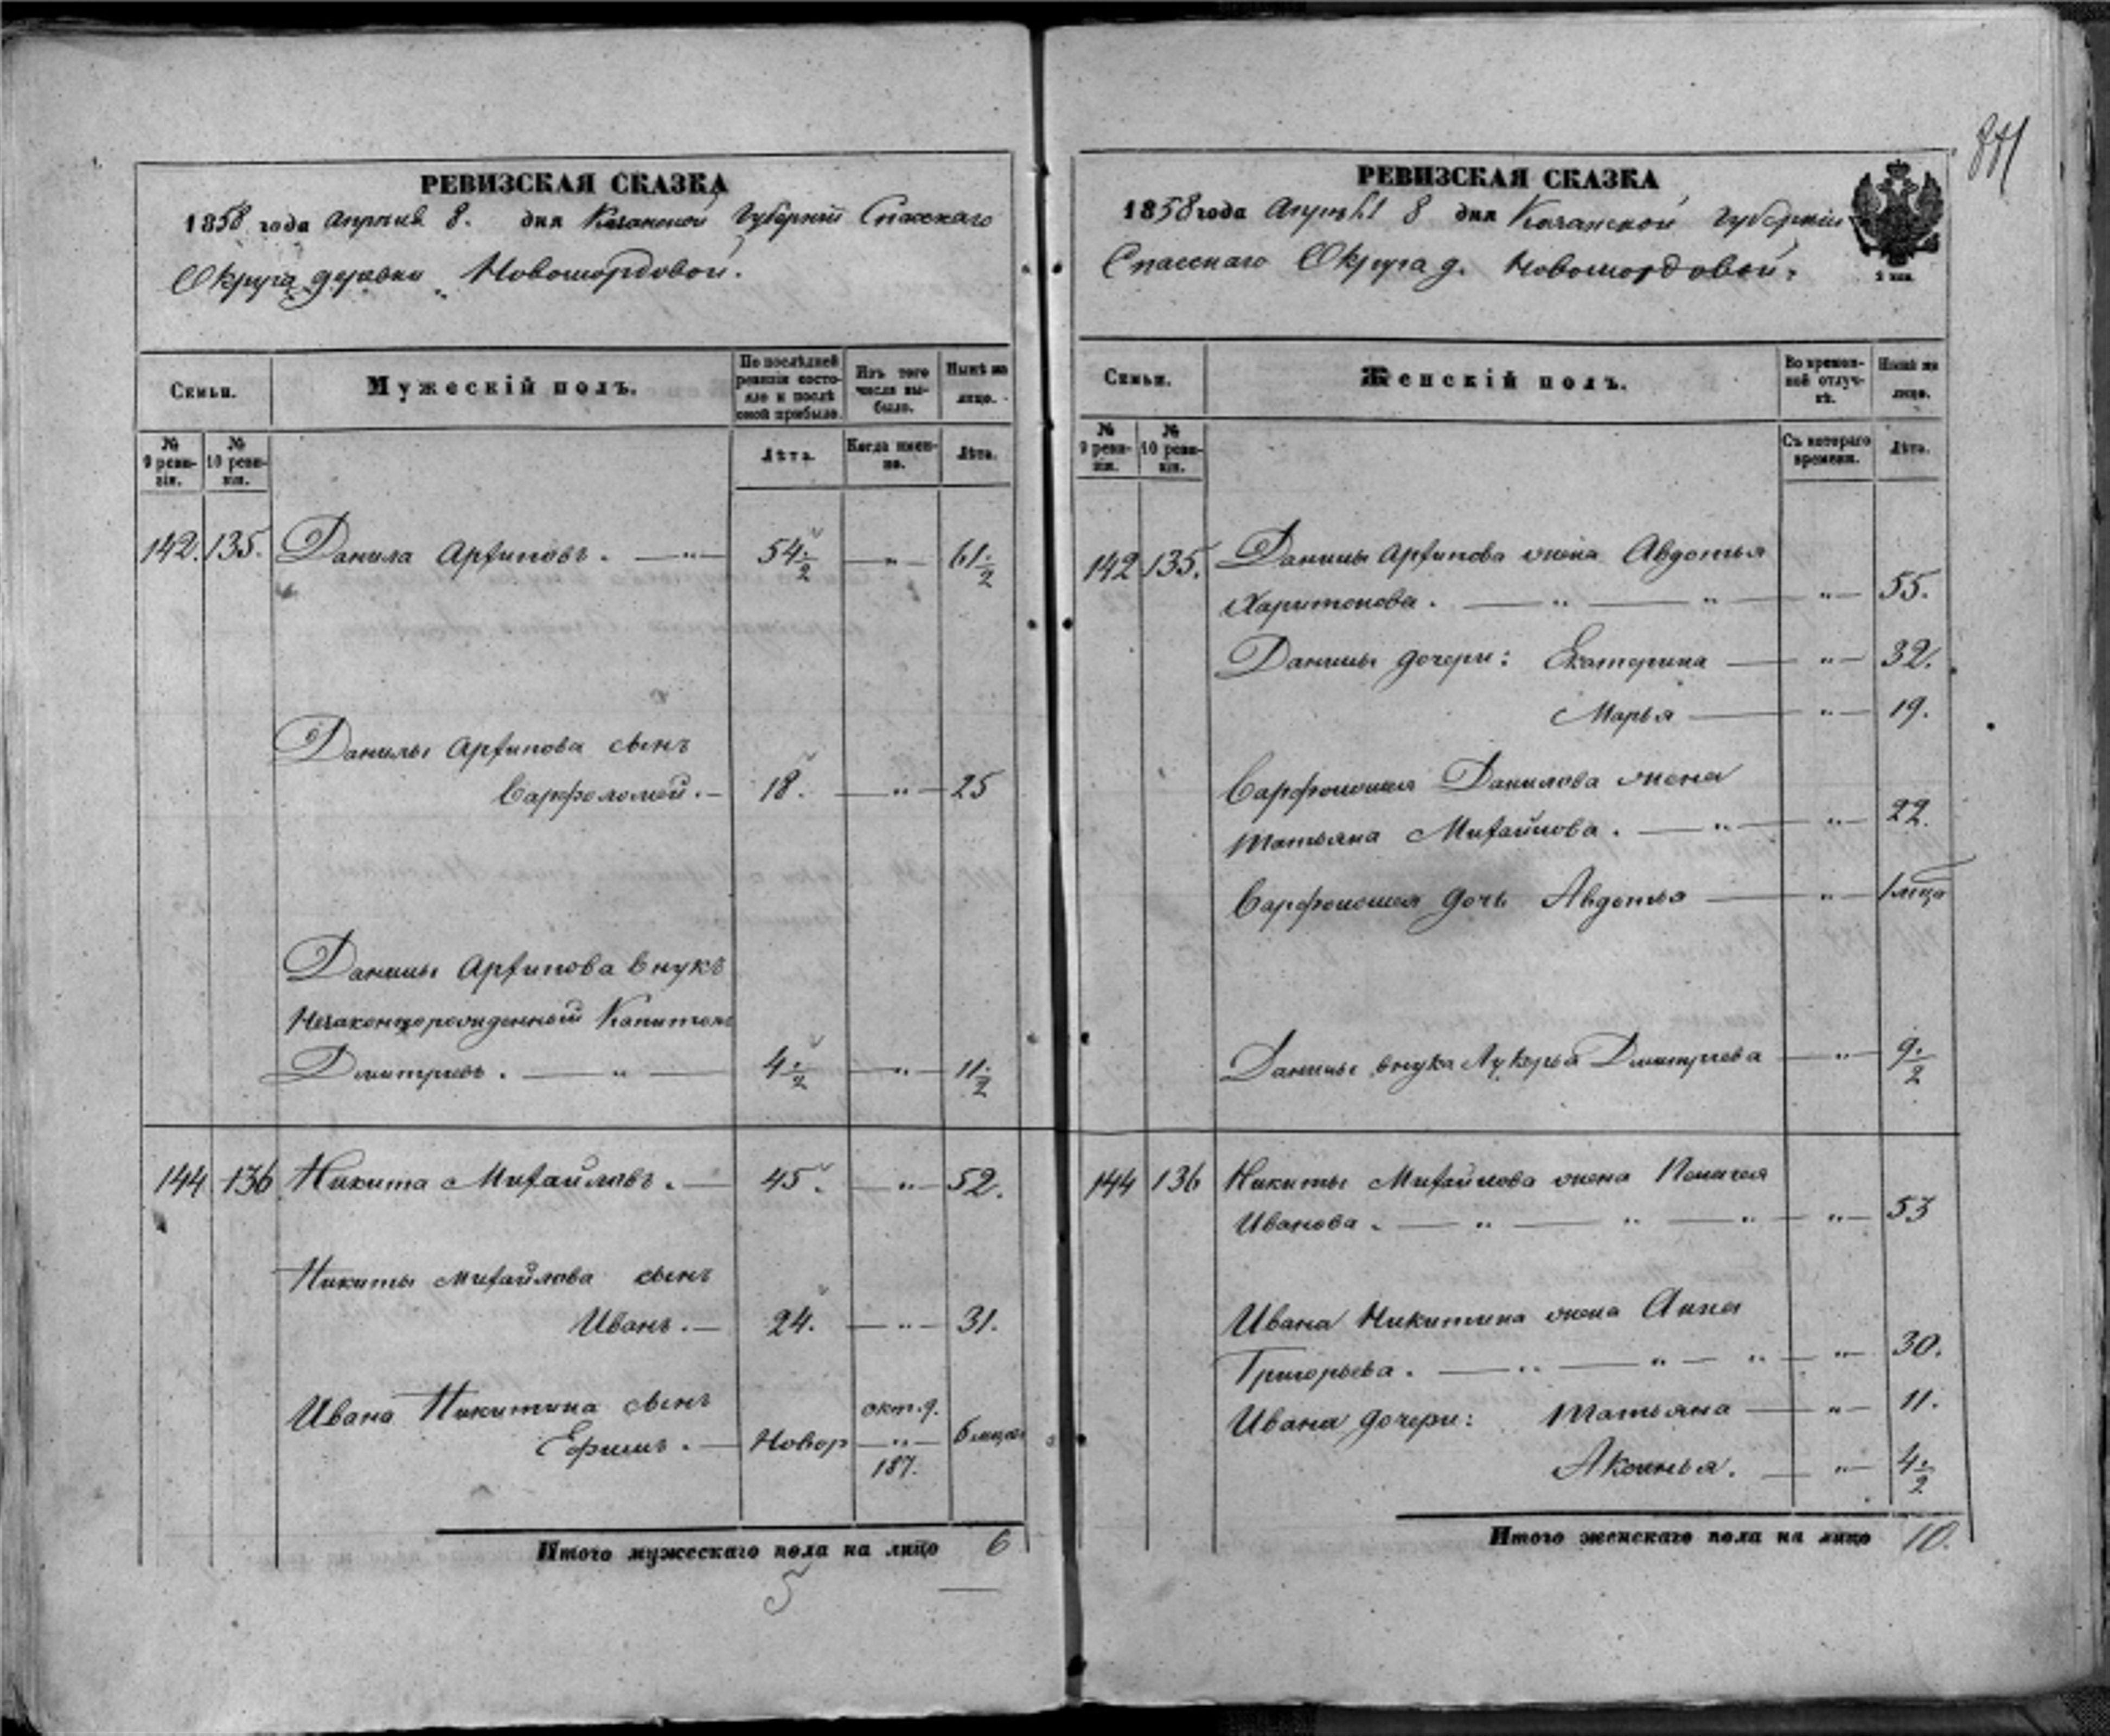 РЕВИЗСКАЯ СКАЗКА
1858 года Апреля 8. дня Казанской Губерніи Спасскаго
Округа деревни Новомордовой.
Семьи.
Мужескій полъ.
По послѣдней ревизіи состояло и послѣ оной прибыло.
Изъ того числа выбыло.
Нынѣ на лицо.
№ 9 ревизіи.
№ 10 ревизіи.
Лѣта.
Когда именно.
Лѣта.
142. 135. Данила Архиповъ. — " — 54 ½ — " — 61 ½
Данилы Архипова сынъ
Варфоломей. — 18. — " — 25
Данилы Архипова внукъ
Незаконнорожденный Капитонъ
Дмитріевъ. — " — 4 ½ — " — 11 ½
144 136 Никита Михайловъ. — 45. — " — 52.
Никиты Михайлова сынъ
Иванъ. — 24. — " — 31.
Ивана Никитина сынъ окт. 9.
Ефимъ. — Новор — " — 6 мцов
187.
Итого мужескаго пола на лицо 6
5
РЕВИЗСКАЯ СКАЗКА
1858 года Апрѣля 8 дня Казанской Губерніи
Спасскаго Округа д. Новомордовой.
Семьи.
Женскій полъ.
Во временной отлучкѣ.
Нынѣ на лицо.
№ 9 ревизіи.
№ 10 ревизіи.
Съ котораго времени.
Лѣта.
142 135. Данилы Архипова жена Авдотья
Харитонова. — " — " — " — 55.
Данилы дочери: Екатерина — " — 32.
Марья — " — 19.
Варфоломея Данилова жена
Татьяна Михайлова. — " — " — 22.
Варфоломея дочь Авдотья — " — 1 мцо
Данилы внука Лукерья Дмитріева — " — 9 ½
144 136 Никиты Михайлова жена Пелагея
Иванова. — " — " — " — " — 53
Ивана Никитина жена Анна
Григорьева. — " — " — " — " — 30.
Ивана дочери: Татьяна — " — 11.
Аксинья. — " — 4 ½
Итого женскаго пола на лицо 10.